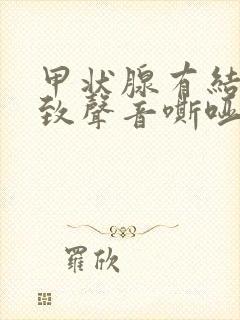 甲状腺有結
致聲音嘶哑
羅欣